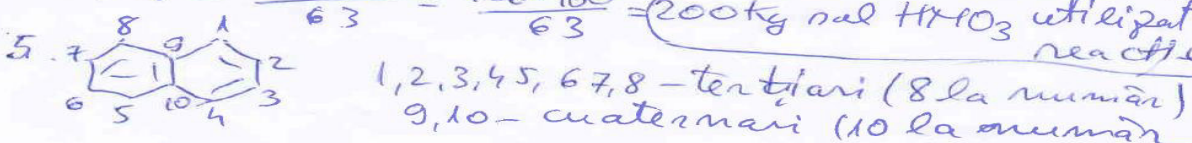 63 - 63 = 200 kg sol HNO3 utilizat
reacție
5. 8 9 1
7 2
6 5 10 4 3
1,2,3,4 5, 6 7,8 – terțiari (8 la număr)
9,10 – cuaternari (10 la număr